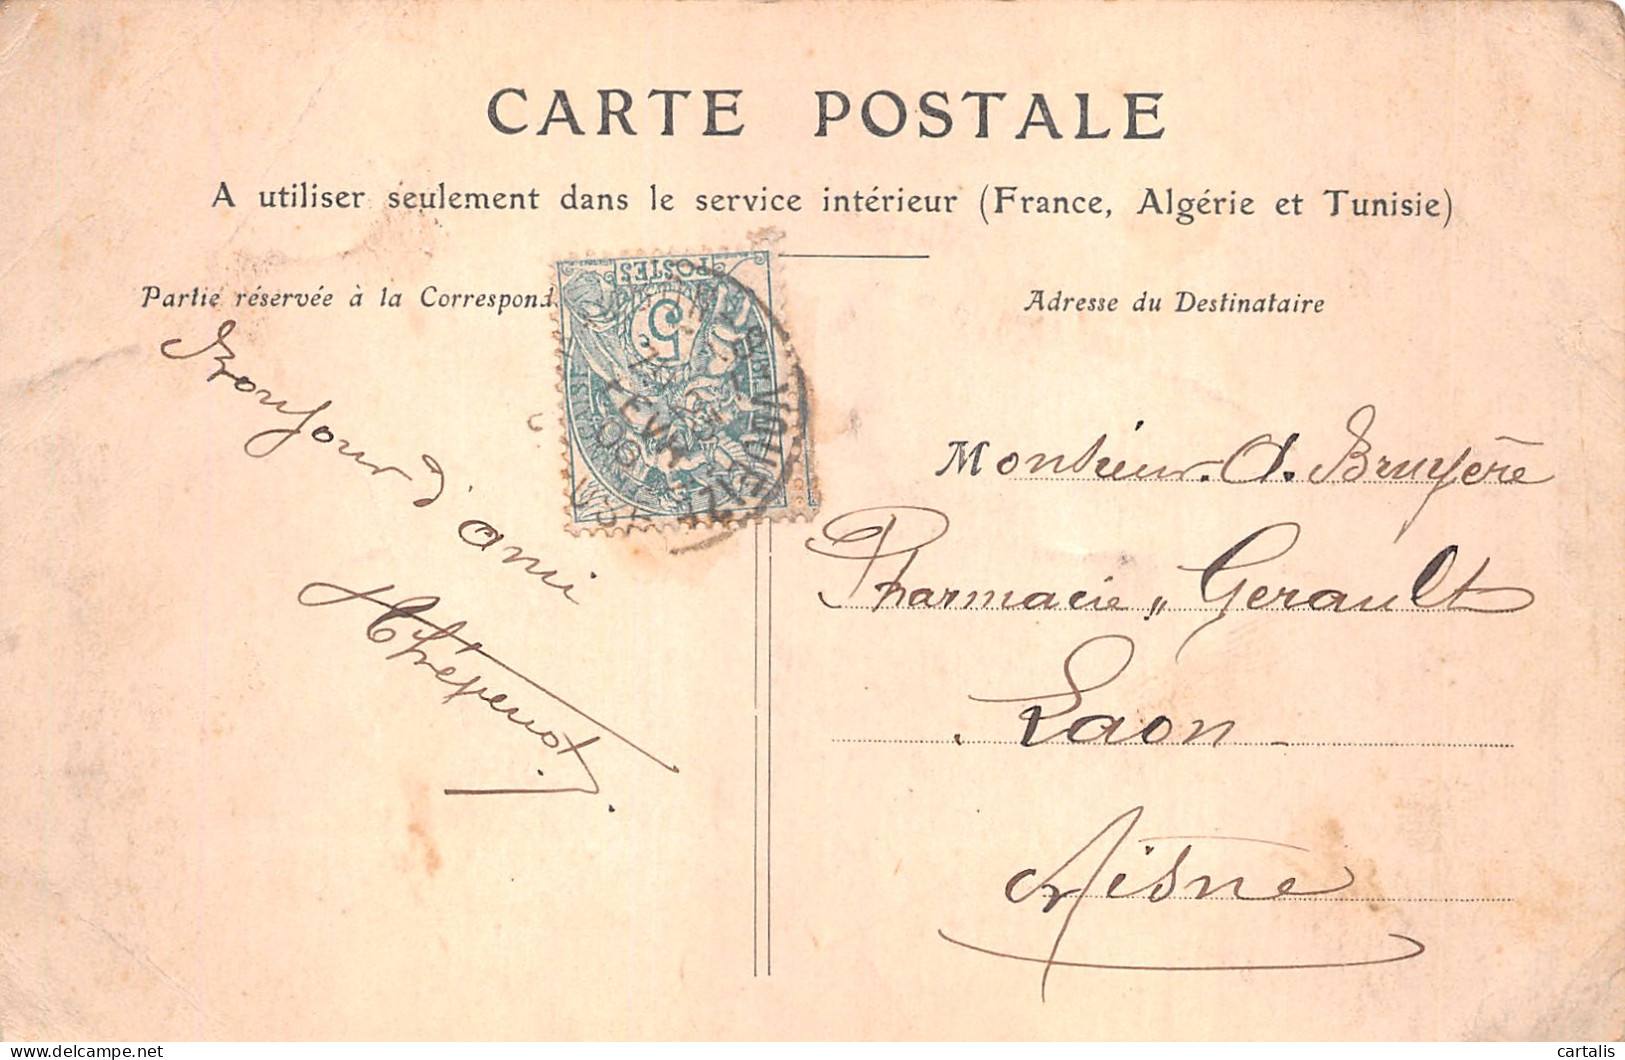 CARTE POSTALE
A utiliser seulement dans le service intérieur (France, Algérie et Tunisie)
Partie réservée à la Correspond
Adresse du Destinataire
POSTES
5
Bonjour d'ami
Monsieur A. Bruyère
Pharmacie „ Gerault
Laon
Aisne
delcampe.net
cartalis